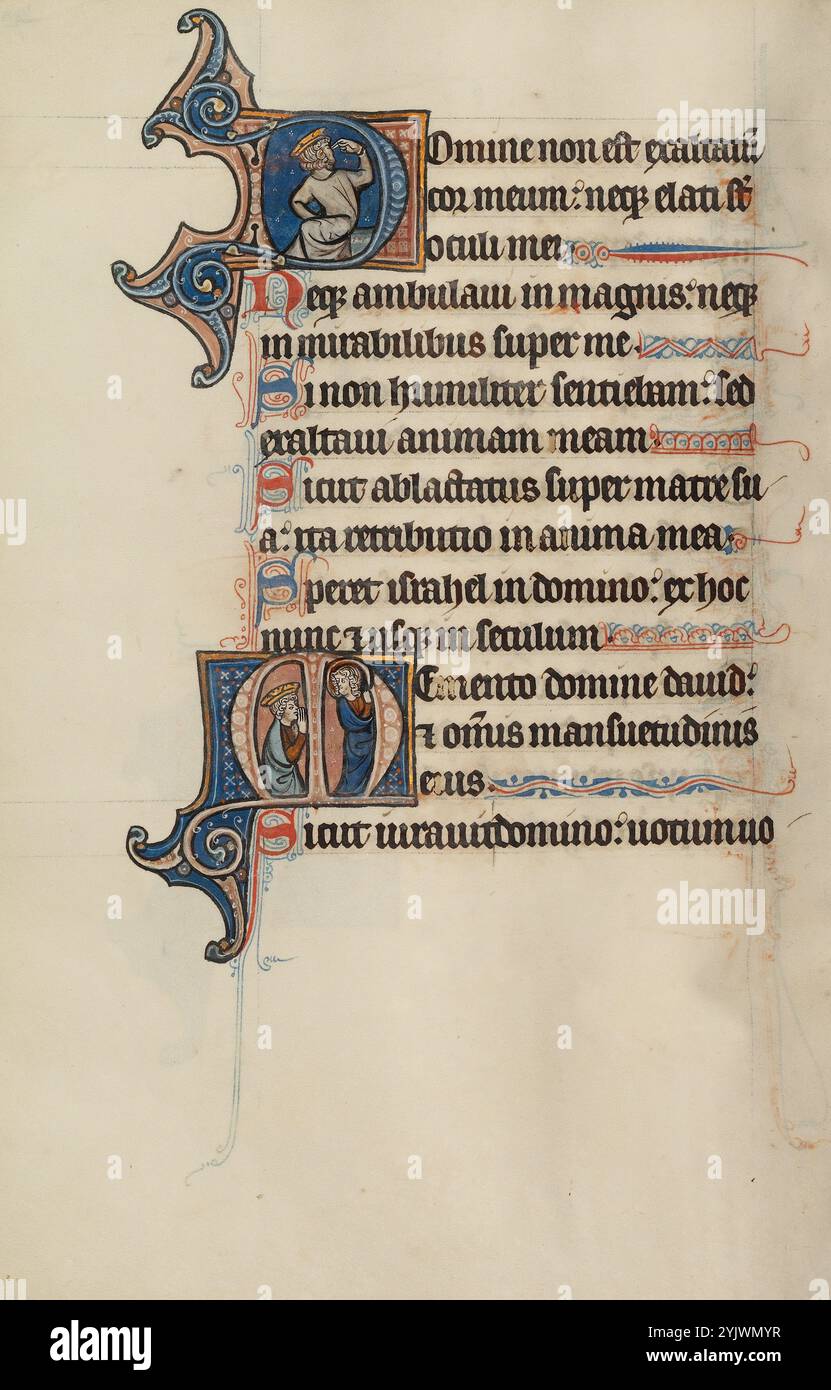 Domine non est exaltatū
cor meum: neqꝫ elati st̄
oculi mei
Neqꝫ ambulaui in magnis: neqꝫ
in mirabilibus super me.
Si non humiliter sentiebam: sed
exaltaui animam meam.
Sicut ablactatus super matre su
a: ita retributio in anima mea.
Speret israhel in domino: ex hoc
nunc ⁊ usqꝫ in seculum.
Memento domine dauid:
⁊ om̄is mansuetudinis
eius.
Sicut iurauit domino: uotum uo
alamy
Image ID: 2YJWMYR
www.alamy.com